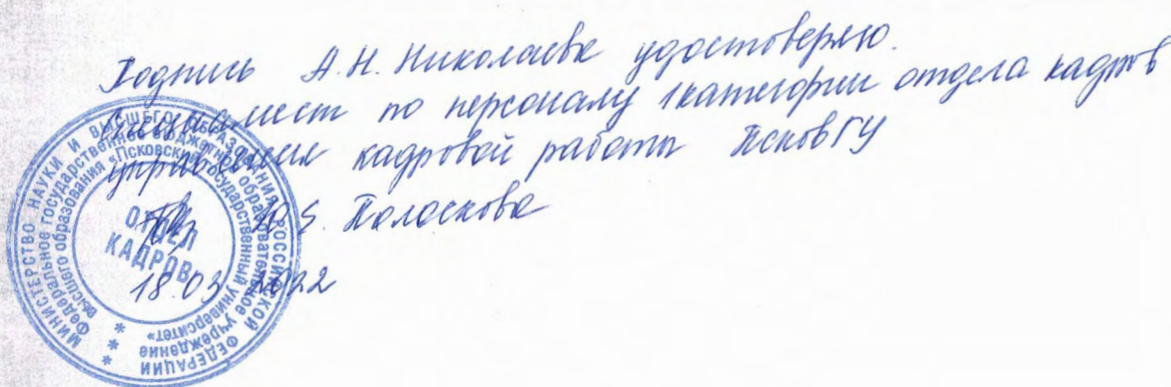 Подпись А.Н. Николаева удостоверяю.
специалист по персоналу 1 категории отдела кадров
управления кадровой работы ПсковГУ
Ю.Б. Полоскова
18.03.2022
МИНИСТЕРСТВО НАУКИ И ВЫСШЕГО ОБРАЗОВАНИЯ РОССИЙСКОЙ ФЕДЕРАЦИИ
Федеральное государственное бюджетное образовательное учреждение
высшего образования «Псковский государственный университет»
ОТДЕЛ
КАДРОВ